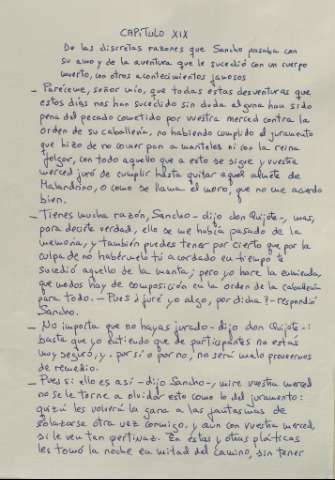 CAPíTULO XIX
De las discretas razones que Sancho pasaba con
su amo y de la aventura que le sucedió con un cuerpo
muerto, con otros acontecimientos famosos
– Paréceme, señor mío, que todas estas desventuras que
estos días nos han sucedido sin duda alguna han sido
pena del pecado cometido por vuestra merced contra la
orden de su caballería, no habiendo cumplido el juramento
que hizo de no comer pan a manteles ni con la reina
folgar, con todo aquello que a esto se sigue y vuestra
merced juró de cumplir hasta quitar aquel almete de
Malandrino, o como se llama el moro, que no me acuerdo
bien.
– Tienes mucha razón, Sancho – dijo don Quijote –, mas,
para decirte verdad, ello se me había pasado de la
memoria, y también puedes tener por cierto que por la
culpa de no habérmelo tú acordado en tiempo te
sucedió aquello de la manta; pero yo haré la enmienda,
que modos hay de composición en la orden de la caballería
para todo. – Pues ¿juré yo algo, por dicha? – respondió
Sancho.
– No importa que no hayas jurado – dijo don Quijote –:
basta que yo entiendo que de participantes no estás
muy seguro, y, por sí o por no, no será malo proveernos
de remedio.
– Pues si ello es así – dijo Sancho –, mire vuestra merced
no se le torne a olvidar esto como lo del juramento:
quizá les volverá la gana a las fantasmas de
solazarse otra vez conmigo, y aun con vuestra merced,
si le ven tan pertinaz. En estas y otras pláticas
les tomó la noche en mitad del camino, sin tener